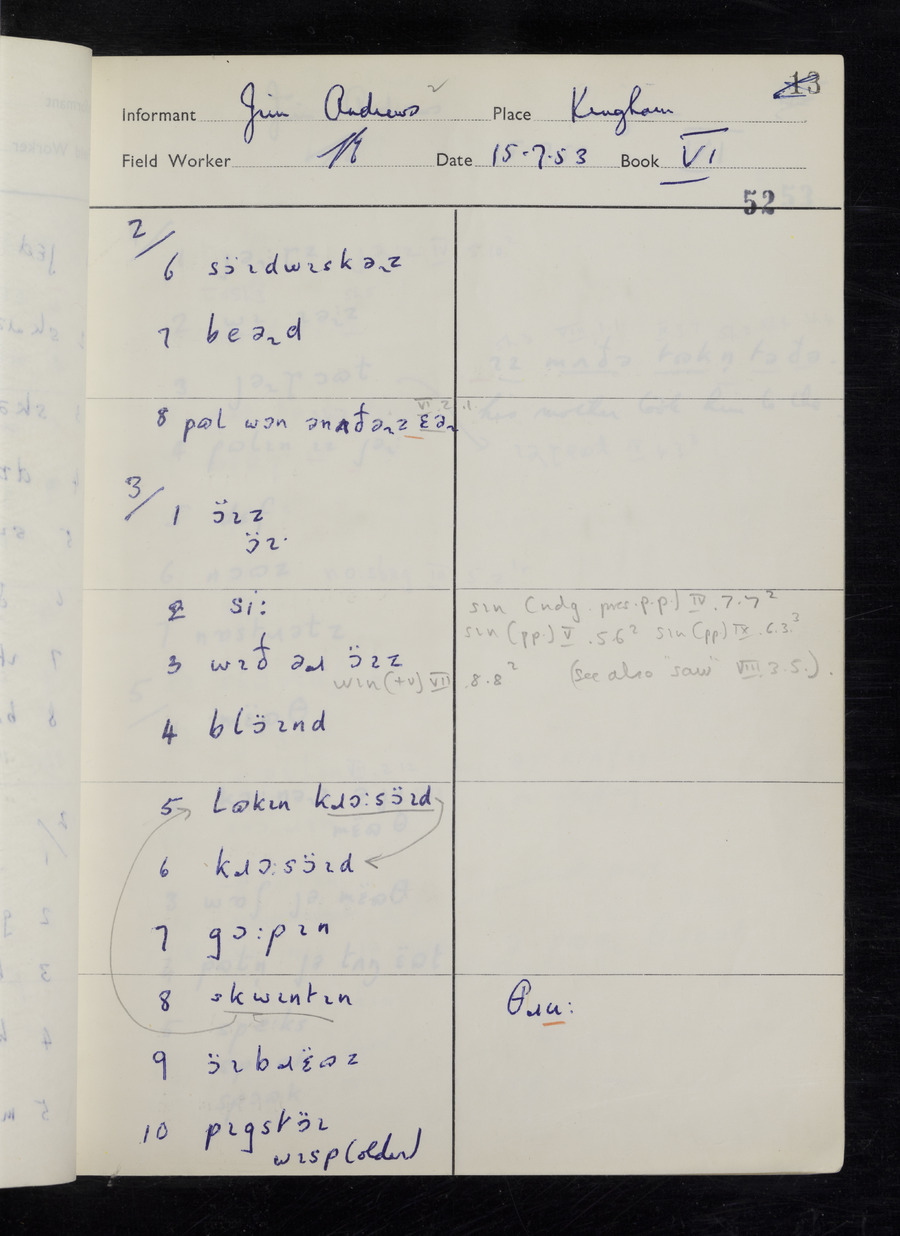 13
Informant Jim Andrews Place Kingham
Field Worker Date 15-7-53 Book VI
52
2/
6 sɔ̈ɪdwɪskəɹz
7 beəɹd
8 pəl wən ənʌðəɹz ɛəɹ
VI 2.1.
3/
1 ɔ̈ɪz
ɔ̈ɪ
2 si:
sɪn (ndg. pres.p.p.) IV.7.7²
sɪn (pp.) V.5.6² sɪn (pp) IX.6.3.³
3 wɪð əɹ ɔ̈ɪz
wɪn (+v) VII 8.8² (see also "saw" VIII 3.5.).
4 blɔ̈ɪnd
5 ləkɪn kɹɔ:sɔ̈ɪd
6 kɹɔ:sɔ̈ɪd
7 gɔ:pɪn
8 skwɪntɪn θɹu:
9 ɔ̈ɪbɹɛ̈əz
10 pɪgstɔ̈ɪ
wɪsp (older)